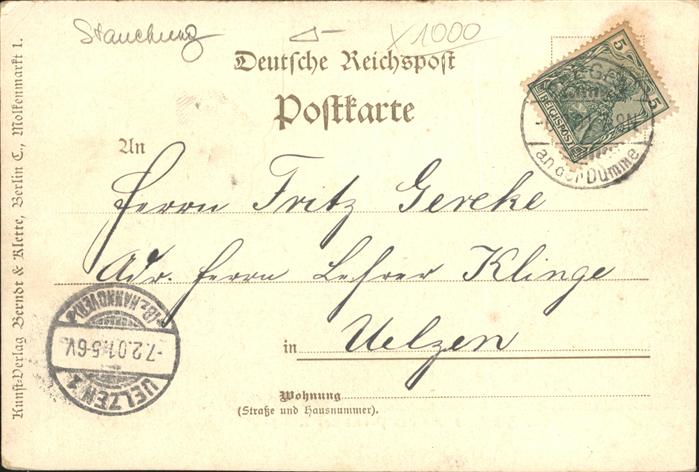 Stauchung
X1000
Deutsche Reichspost
Postkarte
5
5
REICHSPOST
an der Dumme
An
Herrn Fritz Gereke
Adr. Herrn Lehrer Klinge
in Uelzen
Wohnung
(Straße und Hausnummer).
(BZ. HANNOVER)
-7.2.01.5-6V.
UELZEN 1
Kunst-Verlag Berndt & Klette, Berlin C., Molkenmarkt 1.